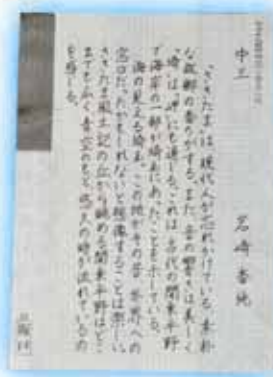 中三
岩崎香純
「さきたま」は、現代人が忘れかけている素朴
な故郷の香りがする。また、音の響きは美しく
「埼」は「岬」にも通じる。これは古代の関東平野
で海岸の一部が埼玉にあったことを示している。
海の見える埼玉。この地がその昔、世界への
窓口だったかもしれないと想像することは楽しい。
さきたま風土記の丘から眺める関東平野はどこ
までも広く、青空のもと悠久の時が流れているの
を感じる。